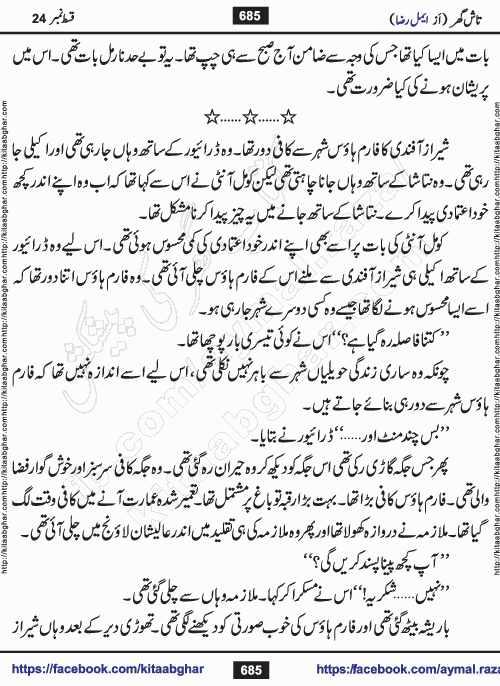 تاش گھر (از ایمل رضا)
685
قسط نمبر 24
بات میں ایسا کیا تھا جس کی وجہ سے ضامن آج صبح سے ہی چپ تھا۔ یہ تو بے حد نارمل بات تھی۔ اس میں
پریشان ہونے کی کیا ضرورت تھی۔
☆......☆......☆
شیراز آفندی کا فارم ہاؤس شہر سے کافی دور تھا۔ وہ ڈرائیور کے ساتھ وہاں جا رہی تھی اور اکیلی جا
رہی تھی۔ وہ نتاشا کے ساتھ وہاں جانا چاہتی تھی لیکن کومل آنٹی نے اس سے کہا تھا کہ اب وہ اپنے اندر کچھ
خود اعتمادی پیدا کرے۔ نتاشا کے ساتھ جانے میں یہ چیز پیدا کرنا مشکل تھا۔
کومل آنٹی کی بات پر اسے بھی اپنے اندر خود اعتمادی کی کمی محسوس ہوئی تھی۔ اس لیے وہ ڈرائیور
کے ساتھ اکیلی ہی شیراز آفندی سے ملنے اس کے فارم ہاؤس چلی آئی تھی۔ وہ فارم ہاؤس اتنا دور تھا کہ
اسے ایسا محسوس ہونے لگا تھا جیسے وہ کسی دوسرے شہر جا رہی ہو۔
’’کتنا فاصلہ رہ گیا ہے؟‘‘ اس نے کوئی تیسری بار پوچھا تھا۔
چونکہ وہ ساری زندگی حویلیاں شہر سے باہر نہیں نکلی تھی، اس لیے اسے اندازہ نہیں تھا کہ فارم
ہاؤس شہر سے دور ہی بنائے جاتے ہیں۔
’’بس چند منٹ اور......‘‘ ڈرائیور نے بتایا۔
پھر جس جگہ گاڑی رکی تھی اس جگہ کو دیکھ کر وہ حیران رہ گئی تھی۔ وہ جگہ کافی سرسبز اور خوش گوار فضا
والی تھی۔ فارم ہاؤس کافی بڑا تھا۔ بہت بڑا رقبہ تو باغ پر مشتمل تھا۔ تعمیر شدہ عمارت آنے میں کافی وقت لگ
گیا تھا۔ ملازمہ نے دروازہ کھولا تھا اور پھر وہ ملازمہ کی ہی تقلید میں اندر عالیشان لاؤنج میں چلی آئی تھی۔
’’آپ کچھ پینا پسند کریں گی؟‘‘
’’نہیں...... شکریہ!‘‘ اس نے مسکرا کر کہا۔ ملازمہ وہاں سے چلی گئی تھی۔
باریشہ بیٹھ گئی تھی اور فارم ہاؤس کی خوب صورتی کو دیکھنے لگی تھی۔ تھوڑی دیر کے بعد وہاں شیراز
https://facebook.com/kitaabghar
685
https://facebook.com/aymal.raza